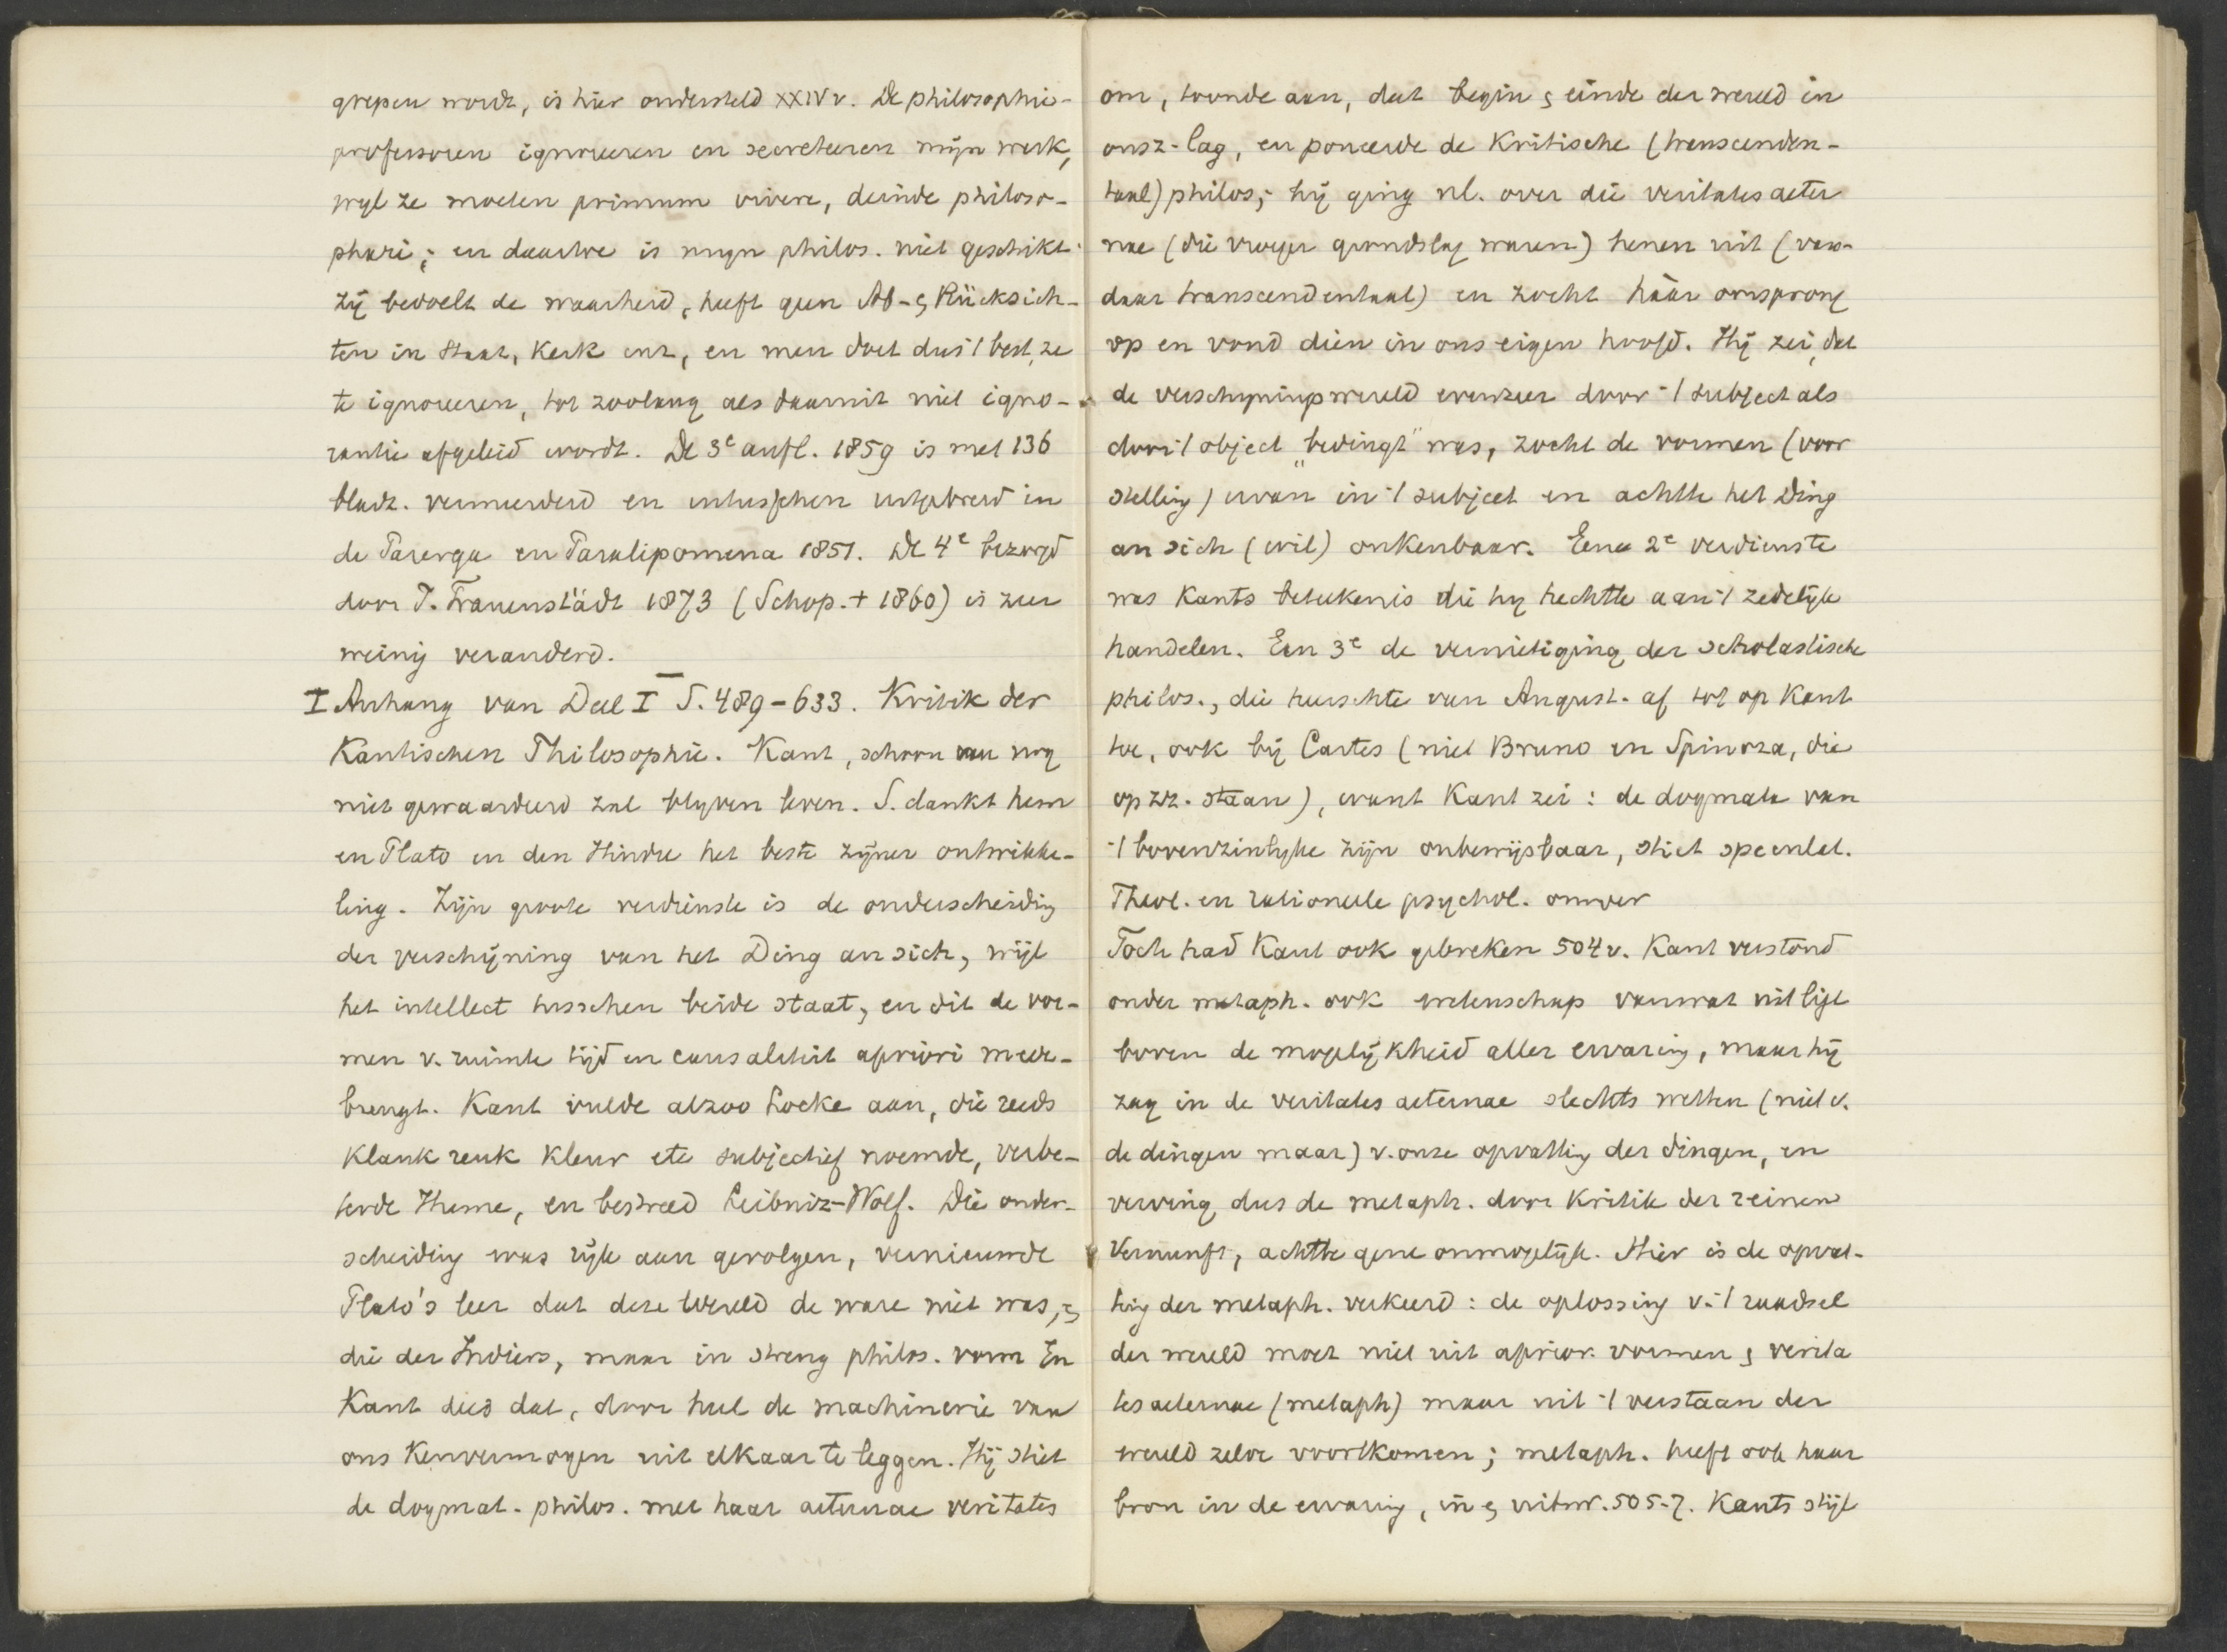 grepen wordt, is hier ondersteld XXIV v. De philosophie-
professoren ignoreeren en secreteeren mijn werk,
wyl ze moeten primum vivere, deinde philoso-
phari; en daartoe is myn philos. niet geschikt.
Zij bedoelt de waarheid, heeft geen Ab- & Rücksich-
ten in Staat, Kerk enz, en men doet dus 't best, ze
te ignoreeren, tot zoolang als daaruit niet igno-
rantie afgeleid wordt. De 3e aufl. 1859 is met 136
bladz. vermeerderd en intusschen uitgebreid in
de Parerga en Paralipomena 1851. De 4e bezorgd
door J. Frauenstädt 1873 (Schop. + 1860) is zeer
weinig veranderd.
I Anhang van Deel I S. 489-633. Kritik der
Kantischen Philosophie. Kant, schoon nu nog
niet gewaardeerd zal blyven leven. S. dankt hem
en Plato en den Hindu het beste zijner ontwikke-
ling. Zijn groote verdienste is de onderscheiding
der verschijning van het Ding an sich, wijl
het intellect tusschen beide staat, en dit de vor-
men v. ruimte tijd en causaliteit apriori mede-
brengt. Kant vulde alzoo Locke aan, die reeds
klank reuk kleur etc subjectief noemde, verbe-
terde Hume, en bestreed Leibniz-Wolf. Die onder-
scheiding was rijk aan gevolgen, vernieuwde
Plato's leer dat deze wereld de ware niet was, &
die der Indiers, maar in streng philos. vorm En
Kant deed dat, door heel de machinerie van
ons Kenvermogen uit elkaar te leggen. Hij stiet
de dogmat. philos. met haar aeternae veritates
om, toonde aan, dat begin & einde der wereld in
onsz- lag, en poneerde de Kritische (transcenden-
taal) philos; hij ging nl. over die veritates aeter
nae (die vroeger grondslag waren) henen uit (van-
daar transcendentaal) en zocht háár oorsprong
op en vond dien in ons eigen hoofd. Hij zei, dat
de verschyningswereld evenzeer door 't subject als
door 't object "bedingt" was, zocht de vormen (voor
stelling) ervan in 't subject en achtte het Ding
an sich (wil) onkenbaar. Eene 2e verdienste
was Kants beteekenis die hy hechtte aan 't zedelijk
handelen. Een 3e de vernietiging der scholastische
philos., die heerschte van August. af tot op Kant
toe, ook bij Cartes (niet Bruno en Spinoza, die
op zz. staan), want Kant zei: de dogmata van
't bovenzinlyke zijn onbewijsbaar, stiet speculat.
Theol. en rationeele psychol. omver
Toch had Kant ook gebreken 504 v. Kant verstond
onder metaph. ook wetenschap van wat uit ligt
boven de mogelijkheid aller ervaring, maar hij
zag in de veritates aeternae slechts wetten (niet v.
de dingen maar) v. onze opvatting der dingen, en
verving dus de metaph. door Kritik der reinen
Vernunft, achtte gene onmogelijk. Hier is de opvat-
ting der metaph. verkeerd: de oplossing v. 't raadsel
der wereld moet niet uit aprior. vormen & verita
tes aeternae (metaph) maar uit 't verstaan der
wereld zelve voortkomen; metaph. heeft ook haar
bron in de ervaring, in & uitw. 505-7. Kants stijl